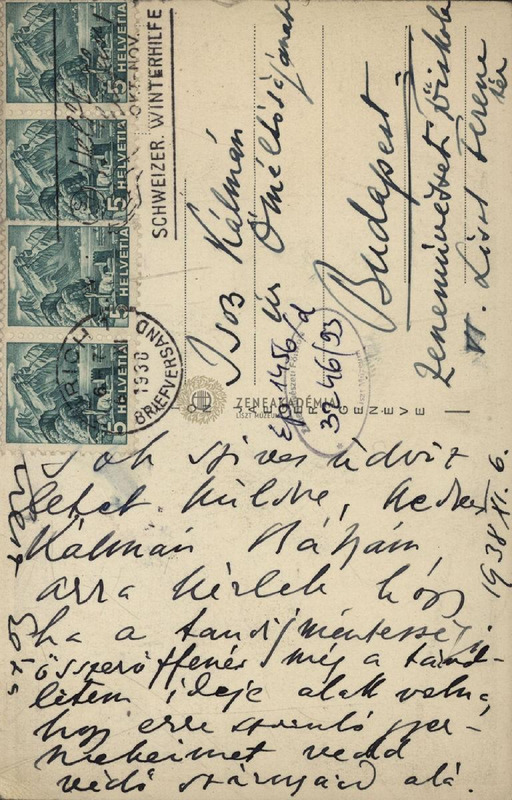 HELVETIA 5
HELVETIA 5
HELVETIA 5
HELVETIA 5
OKT-NOV.
SCHWEIZER. WINTERHILFE
BRIEFVERSAND
1938
Isoz Kálmán
úr Őméltóságának
Budapest
Zeneművészeti Főiskola
VI. Liszt Ferenc
tér
Épr 1456/d
3246/93
ZENEAKADÉMIA
LISZT MÚZEUM
JAEGER GENÈVE
1938 XI. 6.
Sok szives üdvöz
letet küldve, kedves
Kálmán Bátyám,
arra kérlek hogy
ha a tandíjmentességi
összeröffenés még a távol-
létem ideje alatt volna,
hogy erre szoruló gyer-
mekeimet vedd
védő szárnyaid alá.